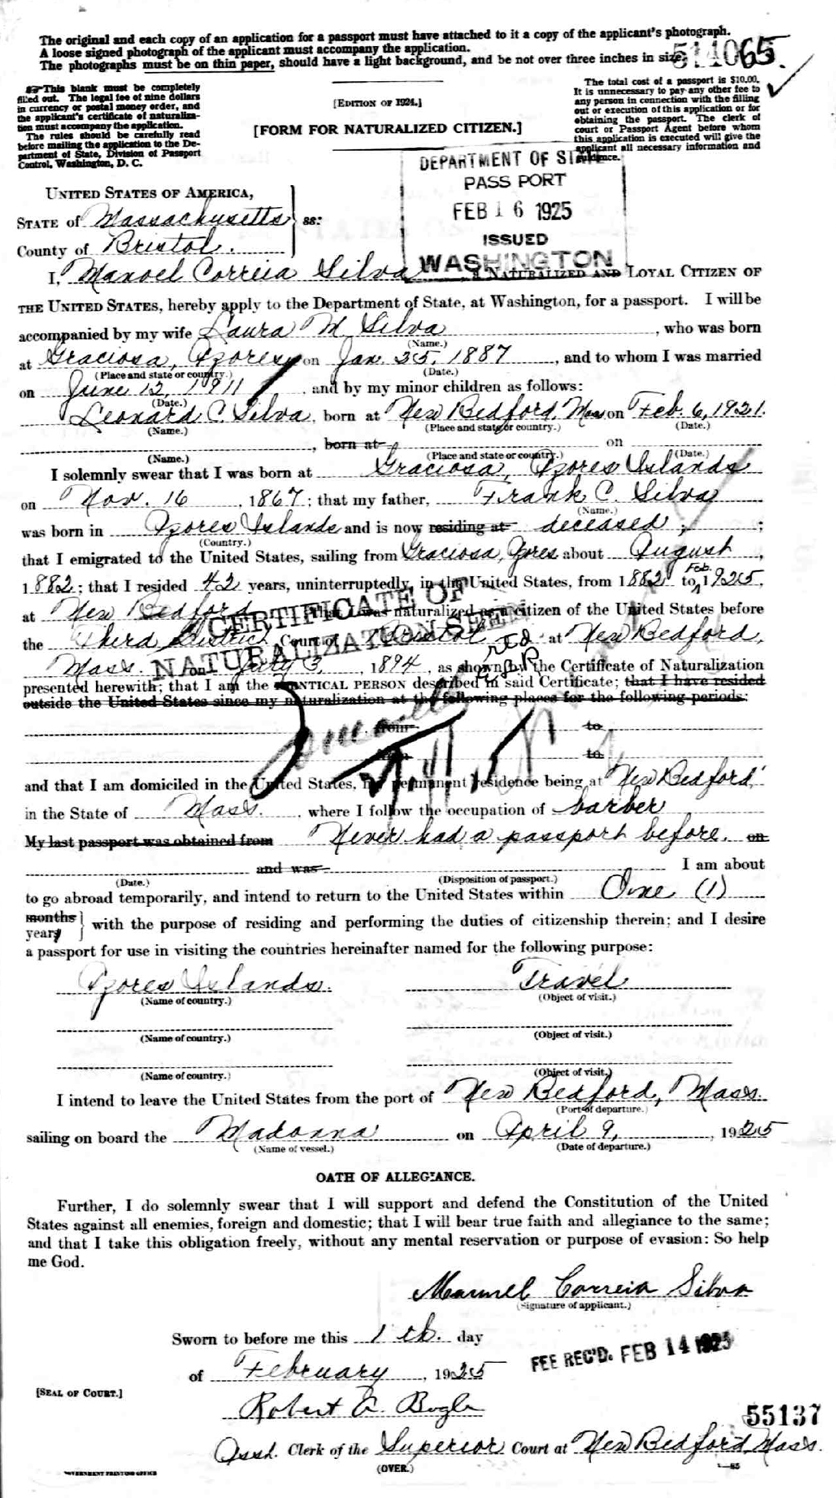 The original and each copy of an application for a passport must have attached to it a copy of the applicant's photograph.
A loose signed photograph of the applicant must accompany the application.
The photographs must be on thin paper, should have a light background, and be not over three inches in size.
514065
This blank must be completely
filled out. The legal fee of nine dollars
in currency or postal money order, and
the applicant's certificate of naturaliza-
tion must accompany the application.
The rules should be carefully read
before mailing the application to the De-
partment of State, Division of Passport
Control, Washington, D. C.
[EDITION OF 1924.]
[FORM FOR NATURALIZED CITIZEN.]
The total cost of a passport is $10.00.
It is unnecessary to pay any other fee to
any person in connection with the filling
out or execution of this application or for
obtaining the passport. The clerk of
court or Passport Agent before whom
this application is executed will give the
applicant all necessary information and
DEPARTMENT OF STATE
PASSPORT
FEB 16 1925
ISSUED
WASHINGTON
UNITED STATES OF AMERICA,
STATE OF Massachusetts ss:
County of Bristol.
I, Manoel Correia Silva A NATURALIZED AND LOYAL CITIZEN OF
THE UNITED STATES, hereby apply to the Department of State, at Washington, for a passport. I will be
accompanied by my wife Laura M Silva, who was born
(Name.)
at Graciosa, Azores, on Jan. 25, 1887, and to whom I was married
(Place and state or country.) (Date.)
on June 12, 1911, and by my minor children as follows:
(Date.)
Leonard C. Silva, born at New Bedford, Mass on Feb. 6, 1921.
(Name.) (Place and state or country.) (Date.)
, born at on
(Name.) (Place and state or country.) (Date.)
I solemnly swear that I was born at Graciosa, Azores Islands
on Nov. 16, 1867; that my father, Frank C. Silva
(Name.)
was born in Azores Islands and is now residing at deceased;
(Country.)
that I emigrated to the United States, sailing from Graciosa, Azores about August,
1882; that I resided 42 years, uninterruptedly, in the United States, from 1882 to Feb. 1925,
at New Bedford that I was naturalized as a citizen of the United States before
the Third District Court of Bristol at New Bedford,
Mass. on July 3, 1894, as shown by the Certificate of Naturalization
CERTIFICATE OF
NATURALIZATION SEEN
presented herewith; that I am the IDENTICAL PERSON described in said Certificate; that I have resided
outside the United States since my naturalization at the following places for the following periods:
from to
to
and that I am domiciled in the United States, my permanent residence being at New Bedford,
in the State of Mass., where I follow the occupation of barber
My last passport was obtained from Never had a passport before. on
and was I am about
(Date.) (Disposition of passport.)
to go abroad temporarily, and intend to return to the United States within One (1)
months
years } with the purpose of residing and performing the duties of citizenship therein; and I desire
a passport for use in visiting the countries hereinafter named for the following purpose:
Azores Islands. Travel
(Name of country.) (Object of visit.)
(Name of country.) (Object of visit.)
(Name of country.) (Object of visit.)
I intend to leave the United States from the port of New Bedford, Mass.
(Port of departure.)
sailing on board the Madonna on April 9, 1925
(Name of vessel.) (Date of departure.)
OATH OF ALLEGIANCE.
Further, I do solemnly swear that I will support and defend the Constitution of the United
States against all enemies, foreign and domestic; that I will bear true faith and allegiance to the same;
and that I take this obligation freely, without any mental reservation or purpose of evasion: So help
me God.
Manuel Correia Silva
(Signature of applicant.)
Sworn to before me this 1th. day
of February, 1925
FEE REC'D. FEB 14 1925
[SEAL OF COURT.]
Robert E. Bogle
55137
Asst. Clerk of the Superior Court at New Bedford, Mass.
(OVER.)
GOVERNMENT PRINTING OFFICE